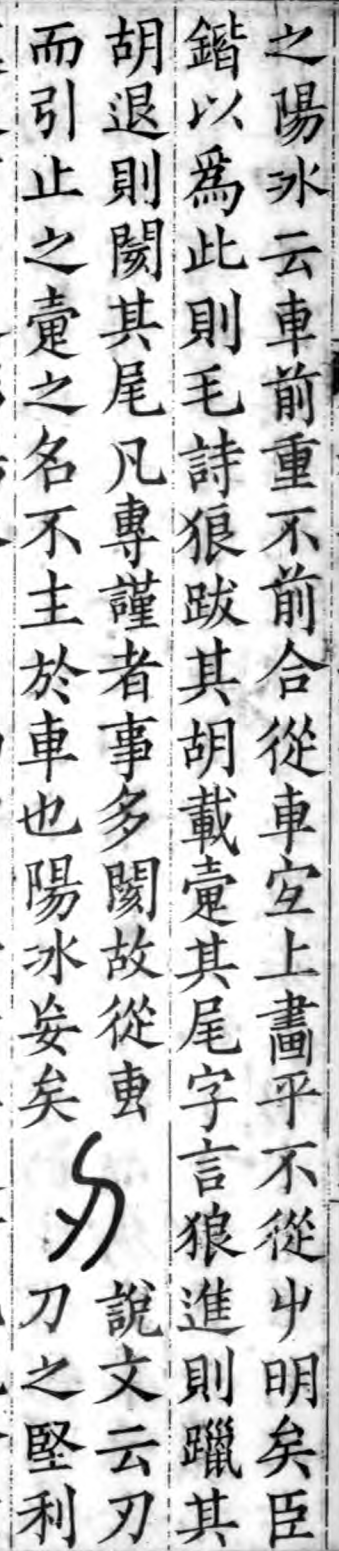 之陽冰云車前重不前合從車宐上畫平不從屮明矣臣
鍇以為此則毛詩狼跋其胡載疐其尾字言狼進則躐其
胡退則閡其尾凡專謹者事多閡故從叀
而引止之疐之名不主於車也陽冰妄矣
刃
說文云刃
刀之堅利